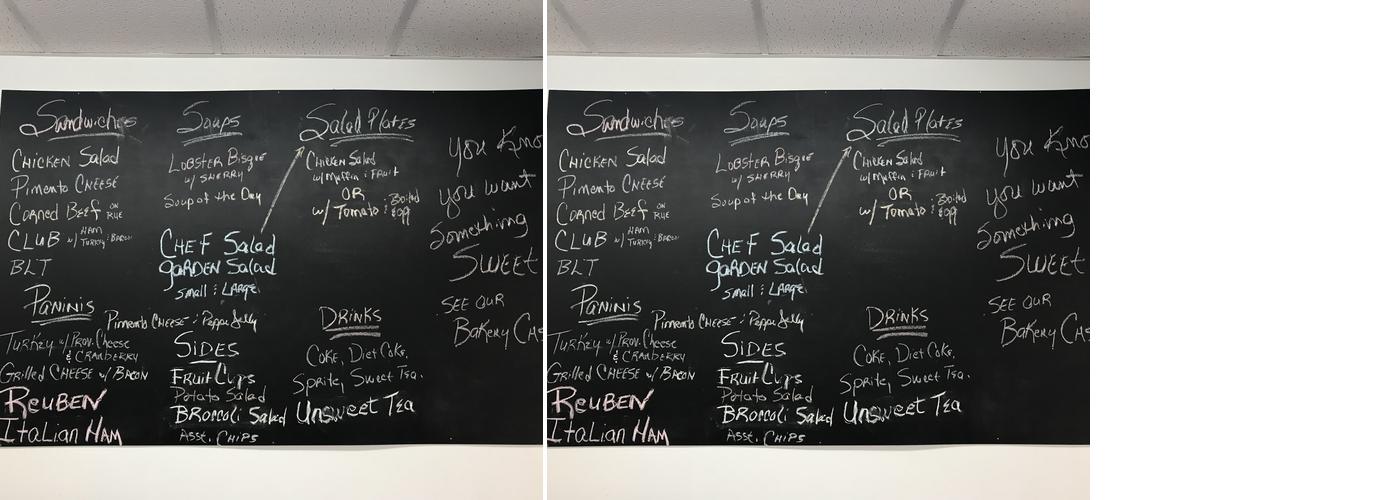 Sandwiches
Chicken Salad
Pimento Cheese
Corned Beef on Rye
Club w/ Ham Turkey & Bacon
BLT
Paninis
Pimento Cheese & Pepper Jelly
Turkey w/ Prov. Cheese
& Cranberry
Grilled Cheese w/ Bacon
Reuben
Italian Ham
Soups
Lobster Bisque
w/ Sherry
Soup of the Day
Chef Salad
Garden Salad
Small & Large
Sides
Fruit Cups
Potato Salad
Broccoli Salad
Asst. Chips
Salad Plates
Chicken Salad
w/ Muffin & Fruit
OR
w/ Tomato & Boiled Egg
Drinks
Coke, Diet Coke,
Sprite, Sweet Tea.
Unsweet Tea
You Kno
you want
Something
Sweet
See our
Bakery Cas
Sandwiches
Chicken Salad
Pimento Cheese
Corned Beef on Rye
Club w/ Ham Turkey & Bacon
BLT
Paninis
Pimento Cheese & Pepper Jelly
Turkey w/ Prov. Cheese
& Cranberry
Grilled Cheese w/ Bacon
Reuben
Italian Ham
Soups
Lobster Bisque
w/ Sherry
Soup of the Day
Chef Salad
Garden Salad
Small & Large
Sides
Fruit Cups
Potato Salad
Broccoli Salad
Asst. Chips
Salad Plates
Chicken Salad
w/ Muffin & Fruit
OR
w/ Tomato & Boiled Egg
Drinks
Coke, Diet Coke,
Sprite, Sweet Tea.
Unsweet Tea
You Kno
you want
Something
Sweet
See our
Bakery Cas